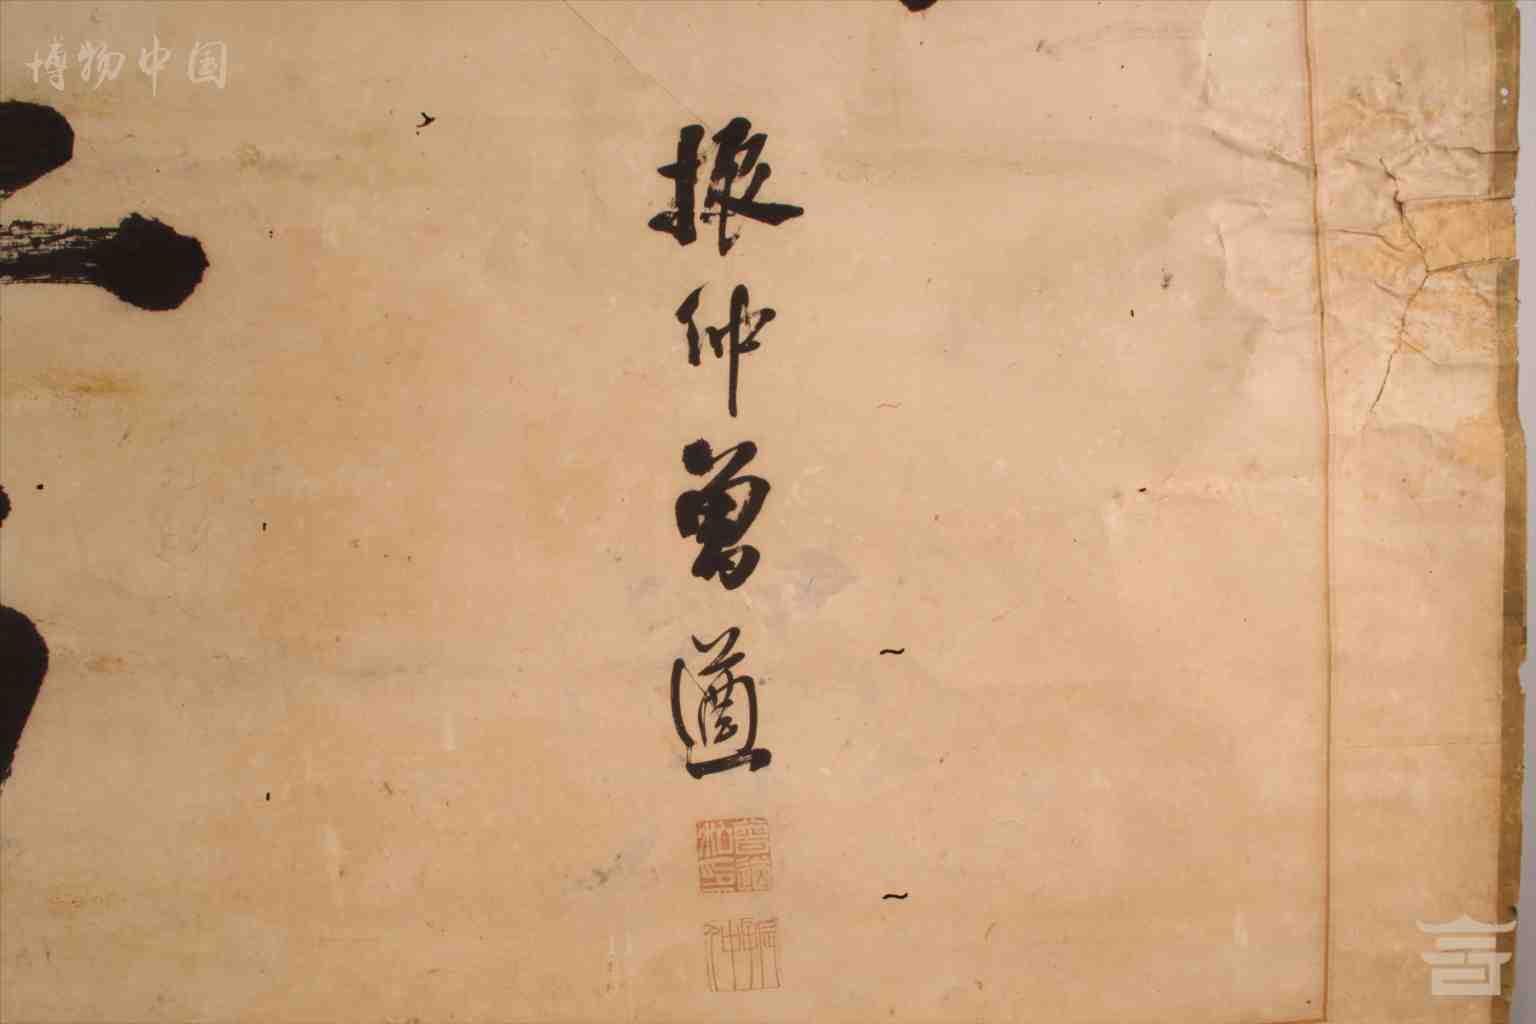 博物中国
振仲曾遒